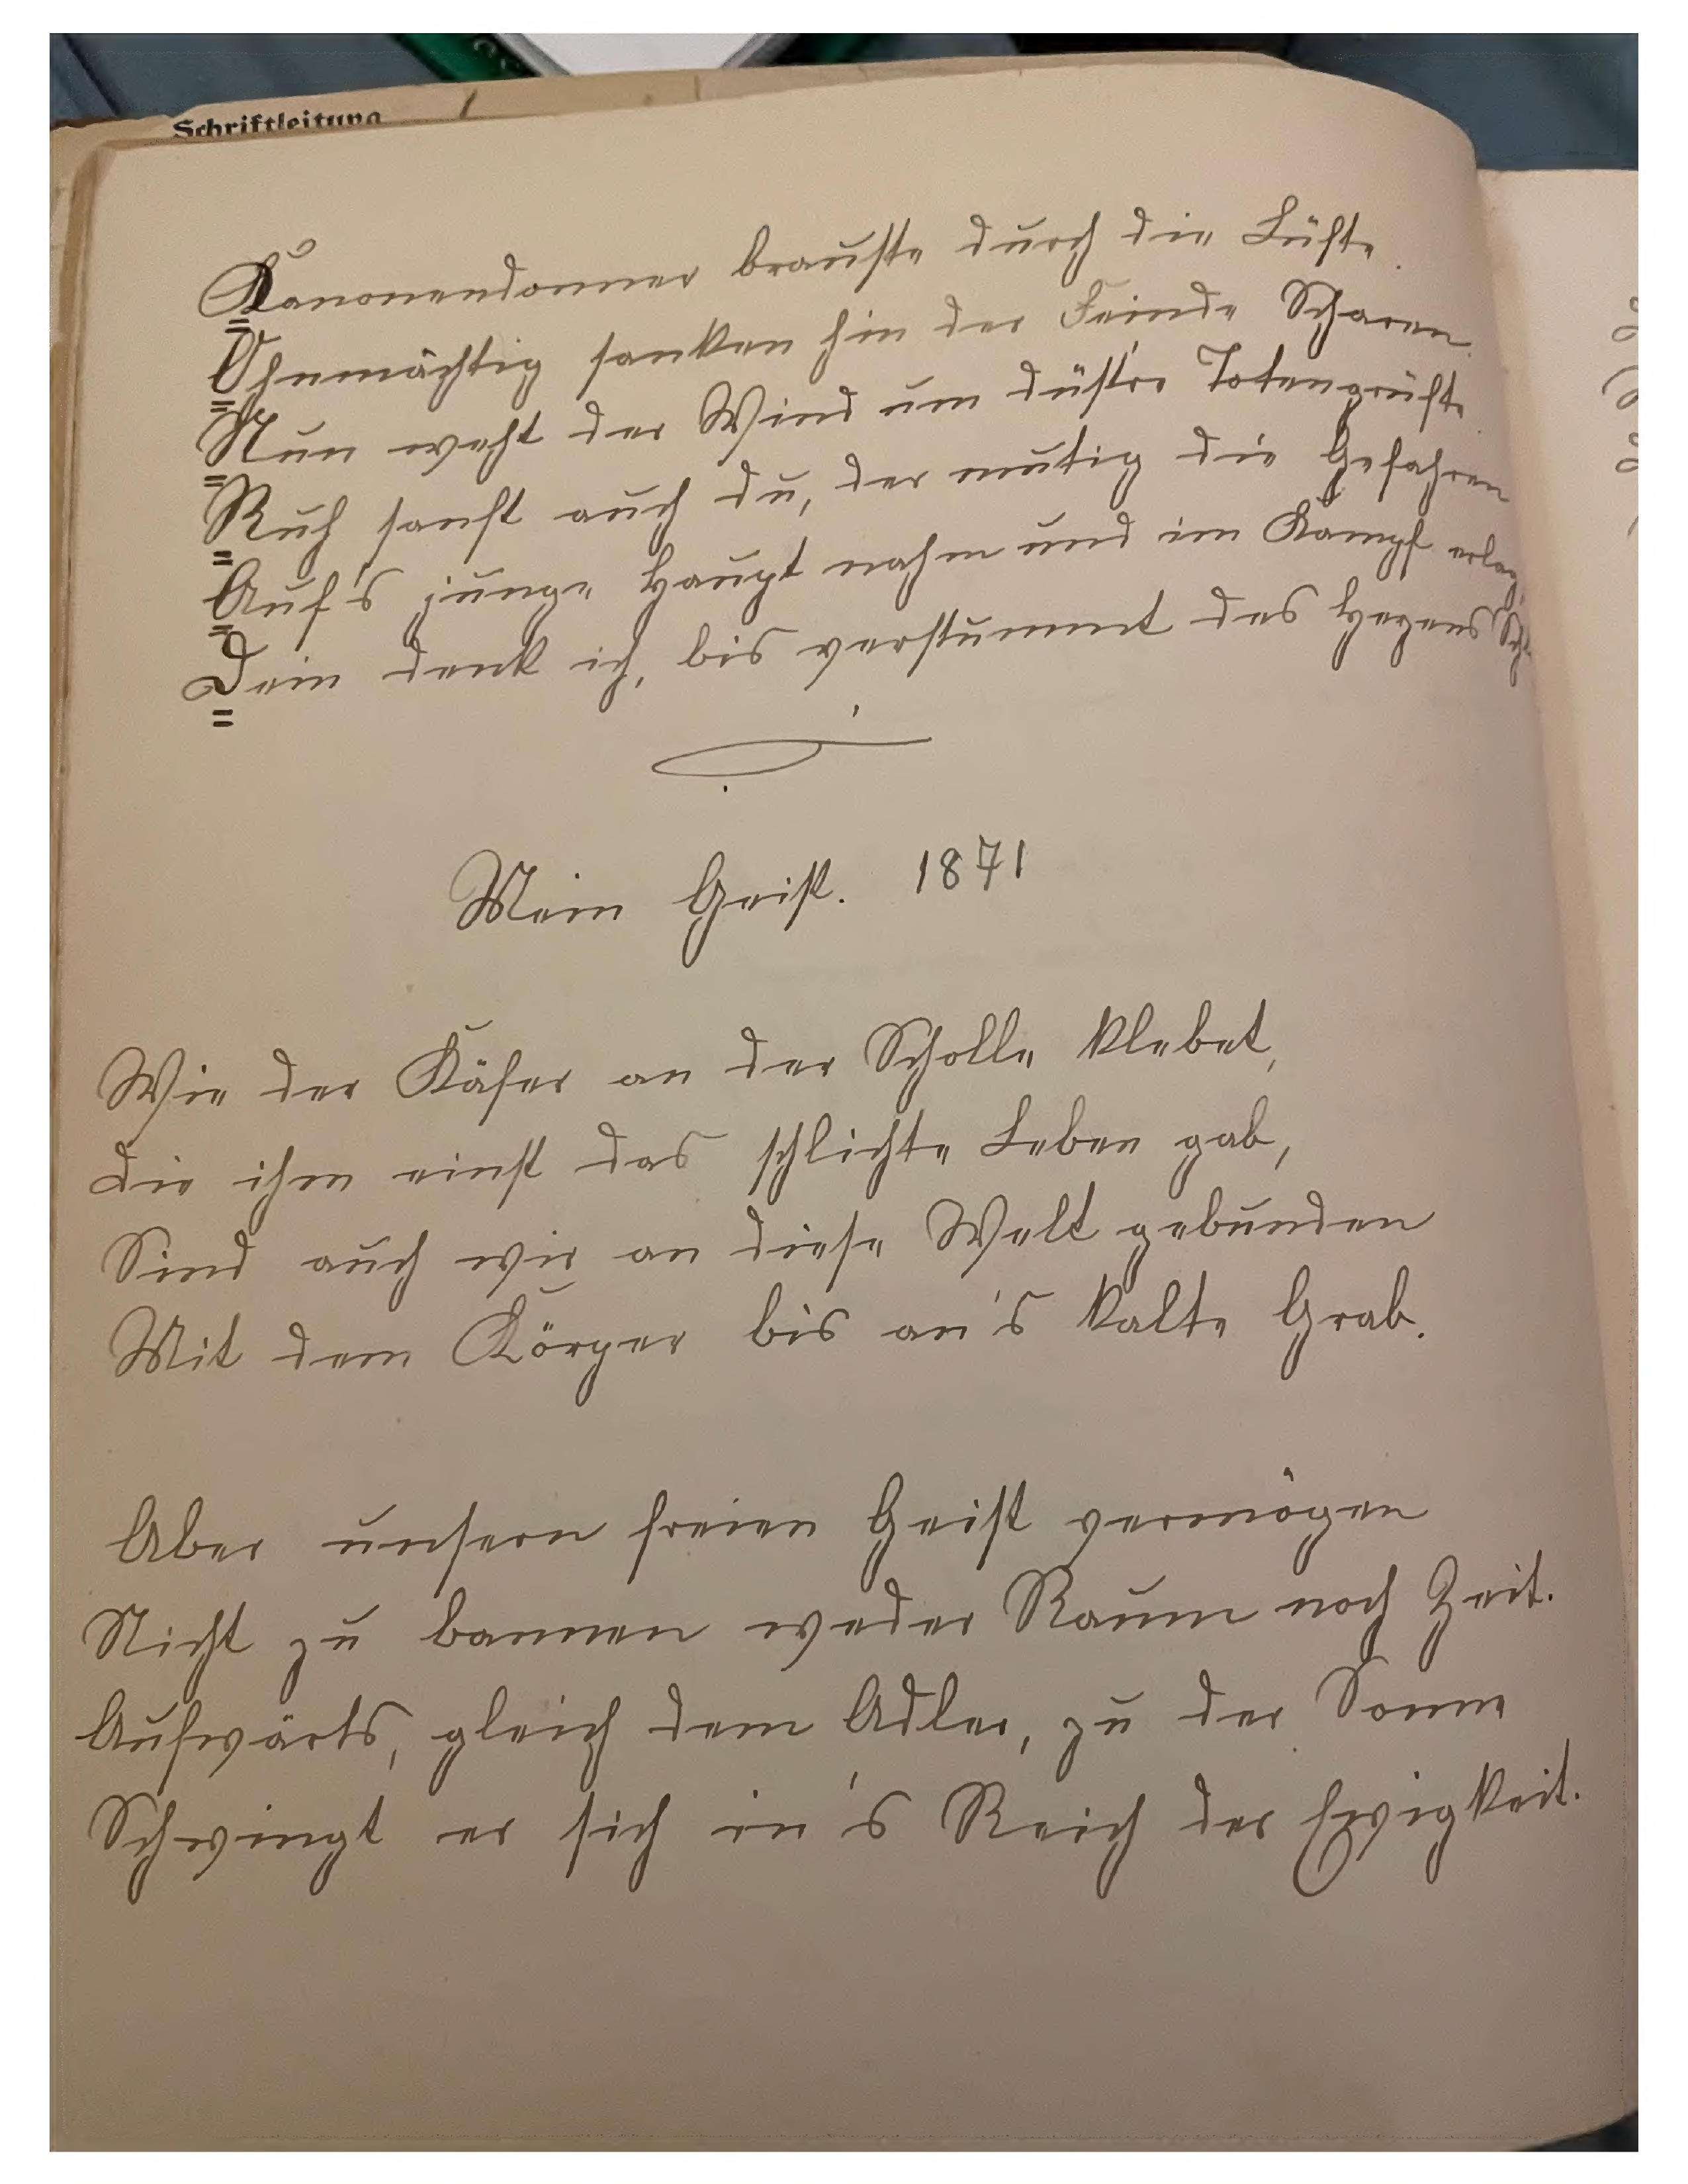 Schriftleitung
Kanonendonner brauste durch die Lüfte.
Ohnmächtig sanken hin der Feinde Scharen.
Nun weht der Wind um düst're Totengrüfte.
Ruh sanft auch du, der mutig die Gefahren
Auf's junge Haupt nahm und im Kampf erlag,
Dein denk ich, bis verstummt des Herzens
Mein Geist. 1871
Wie der Käfer an der Scholle klebet,
Die ihm einst das schlichte Leben gab,
Sind auch wir an diese Welt gebunden
Mit dem Körper bis an's kalte Grab.
Aber unsern freien Geist vermögen
Nicht zu bannen weder Raum noch Zeit.
Aufwärts, gleich dem Adler, zu der Sonne
Schwingt er sich in's Reich der Ewigkeit.